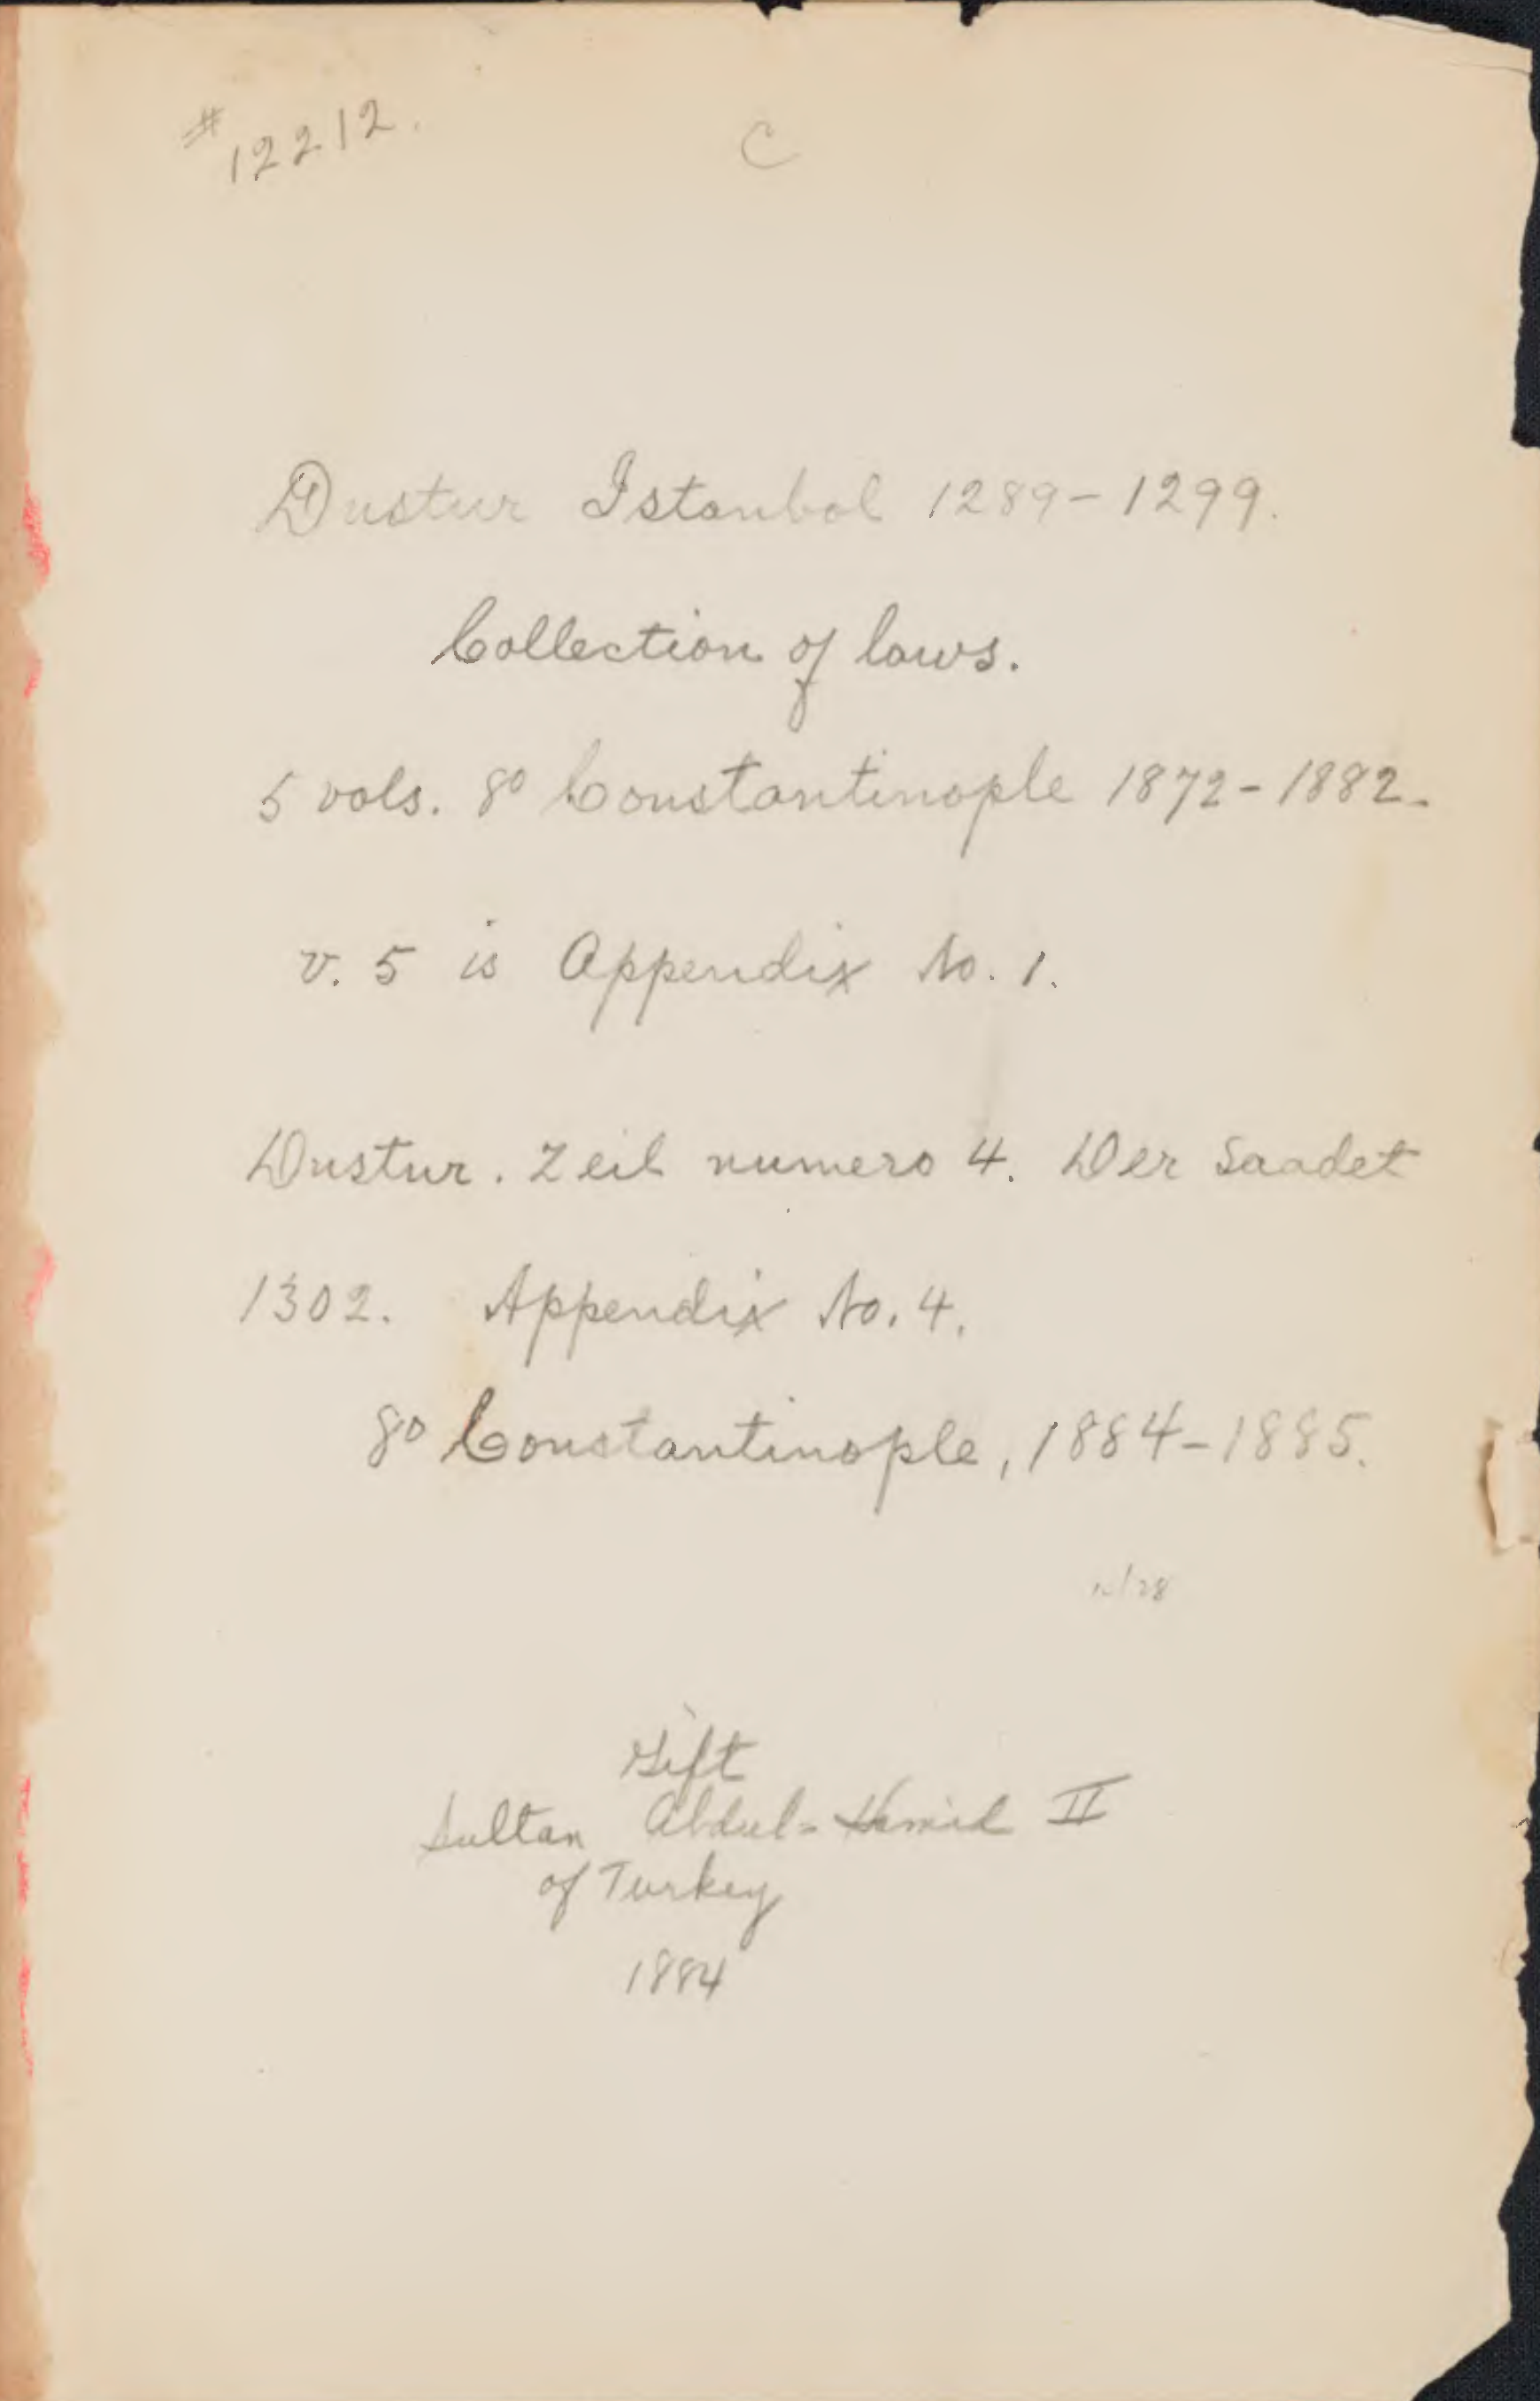 #
12212.
C
Dustur Istanbol 1289-1299.
Collection of laws.
5 vols. 8o Constantinople 1872-1882.
v. 5 is Appendix No. 1.
Dustur. Zeil numero 4. Der Saadet
1302. Appendix No. 4.
8o Constantinople, 1884-1885.
Gift
Sultan Abdul-Hamid II
of Turkey
1884